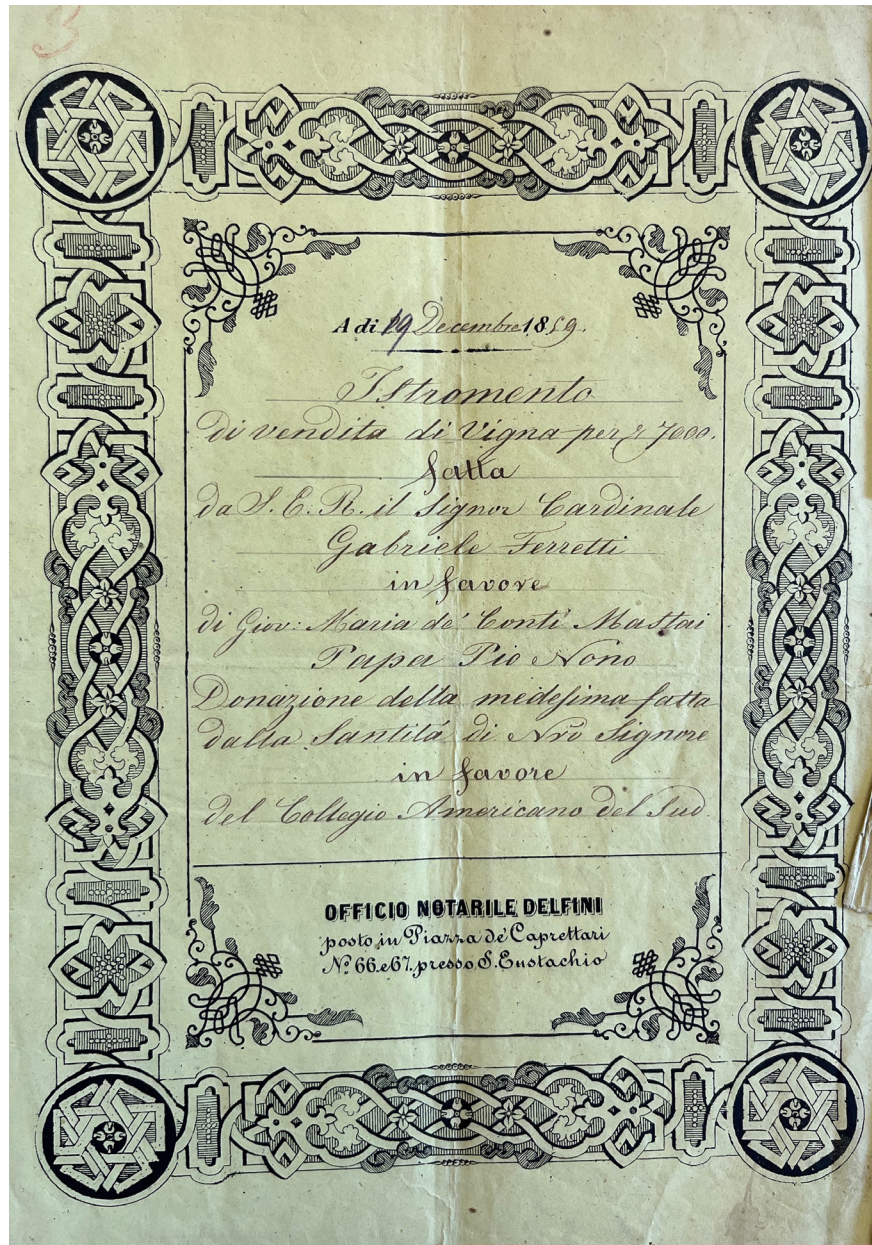 3
A di 19 Decembre 1859.
Istromento
di vendita di Vigna per 7000.
fatta
da S. E. R. il Signor Cardinale
Gabriele Ferretti
in favore
di Giov: Maria de' Conti Mastai
Papa Pio Nono
Donazione della medesima fatta
dalla Santitá di Nrō Signore
in favore
del Collegio Americano del Sud
OFFICIO NOTARILE DELFINI
posto in Piazza de' Caprettari
Nº 66.e 67. presso S. Eustachio